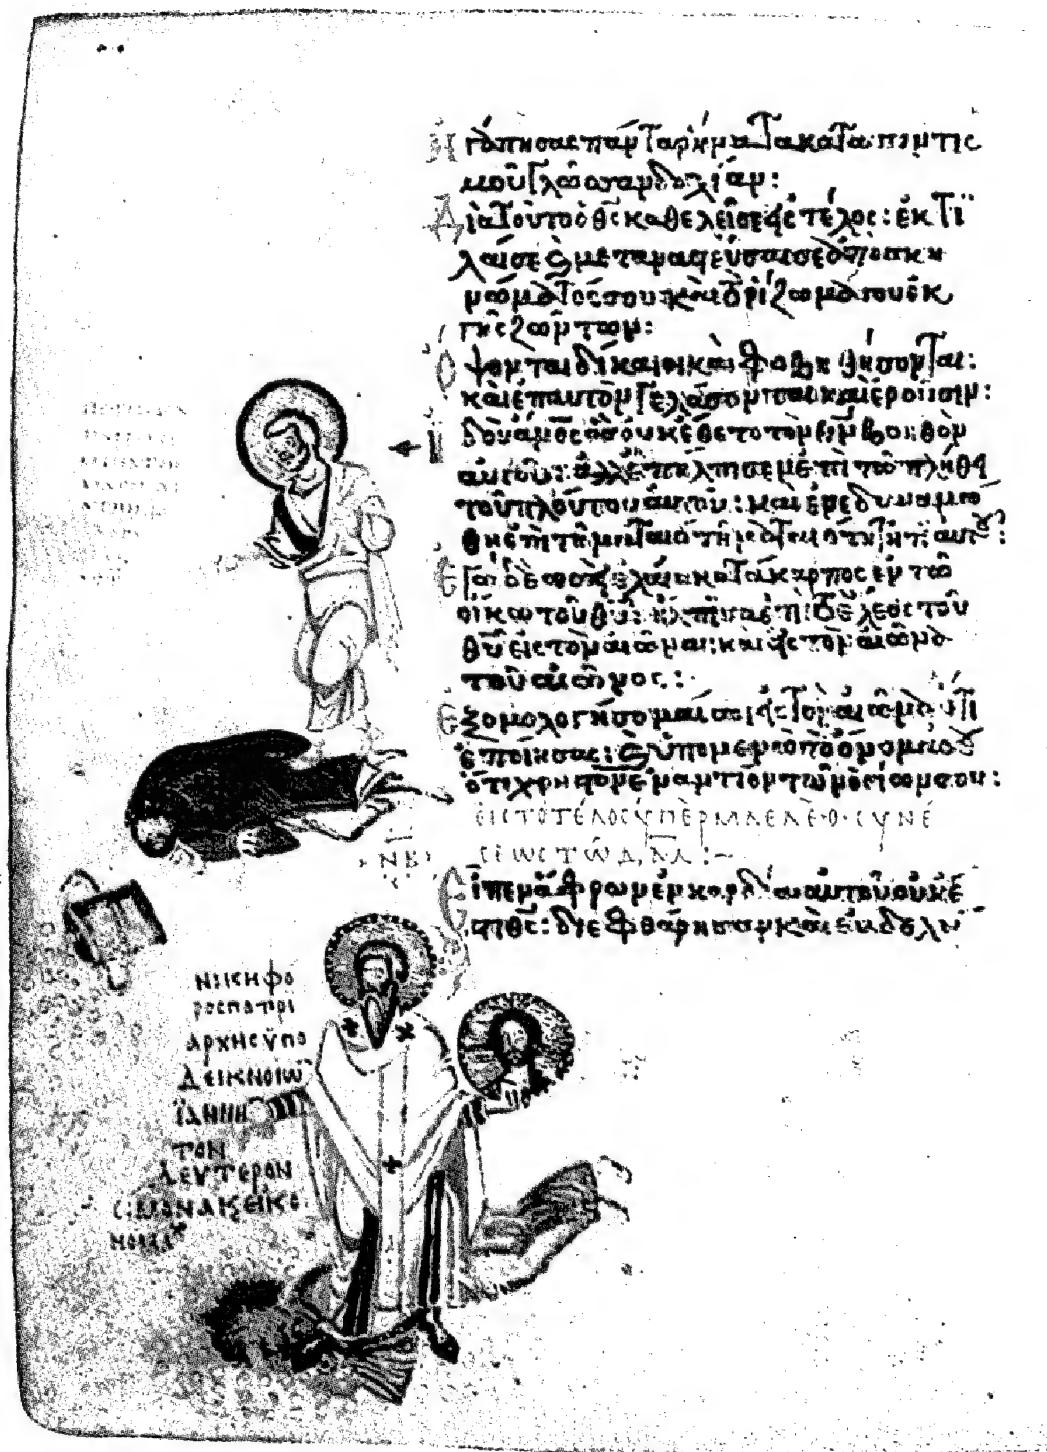 Ἠγάπησας πάντα ρήματα καταποντισ
μοῦ γλῶσσαν δολίαν:
Διὰ τοῦτο ὁ θς καθελεῖ σε εἰς τέλος: ἐκτί
λαι σε ϗ μεταναστεύσαι σε ἀπὸ σκη
νώματός σου: καὶ τὸ ρίζωμά σου ἐκ
γῆς ζώντων:
Ὄψονται δίκαιοι καὶ φοβηθήσονται:
καὶ ἐπ αυτὸν γελάσονται καὶ ἐροῦσιν:
Ϊδοὺ ἄνος ὃς οὐκ ἔθετο τὸν θν βοηθὸν
αὐτοῦ: ἀλλ ἐπήλπισεν ἐπὶ τῶ πλήθει
τοῦ πλούτου αὐτοῦ: καὶ ἐνεδυναμώ
θη ἐπὶ τῆ ματαιότητι αὐτοῦ:
Ἐγὼ δὲ ὡσεὶ ἐλαία κατάκαρπος ἐν τῶ
οἴκω τοῦ θυ: ἤλπισα ἐπὶ τὸ ἔλεος τοῦ
θυ εἰς τὸν αἰῶνα: καὶ εἰς τὸν αἰῶνα
τοῦ αἰῶνος:
Ἐξομολογήσομαί σοι εἰς τὸν αἰῶνα ὅτι
ἐποίησας: ϗ ὑπομενῶ τὸ ὄνομά σου
ὅτι χρηστὸν ἐναντίον τῶν ὁσίων σου:
ΕΙΣ ΤΟ ΤΕΛΟΣ ΥΠΕΡ ΜΑΕΛΕΘ ΣΥΝΕ
ΝΒ ΣΕΩΣ ΤΩ ΔΑΔ:
Εἶπεν ἄφρων ἐν καρδία αὐτοῦ οὐκ ἔ
στι θς: διεφθάρησαν καὶ ἐβδελύ
ΝΙΚΗΦΟ
ΡΟΣ ΠΑΤΡΙ
ΑΡΧΗΣ ΫΠΟ
ΔΕΙΚΝΟΙΩ
ΪΑΝΝΗ
ΤΟΝ
ΔΕΥΤΕΡΟΝ
ΣΙΜΟΝΑ Κ ΕΙΚΟ
ΝΟΜΑΧ